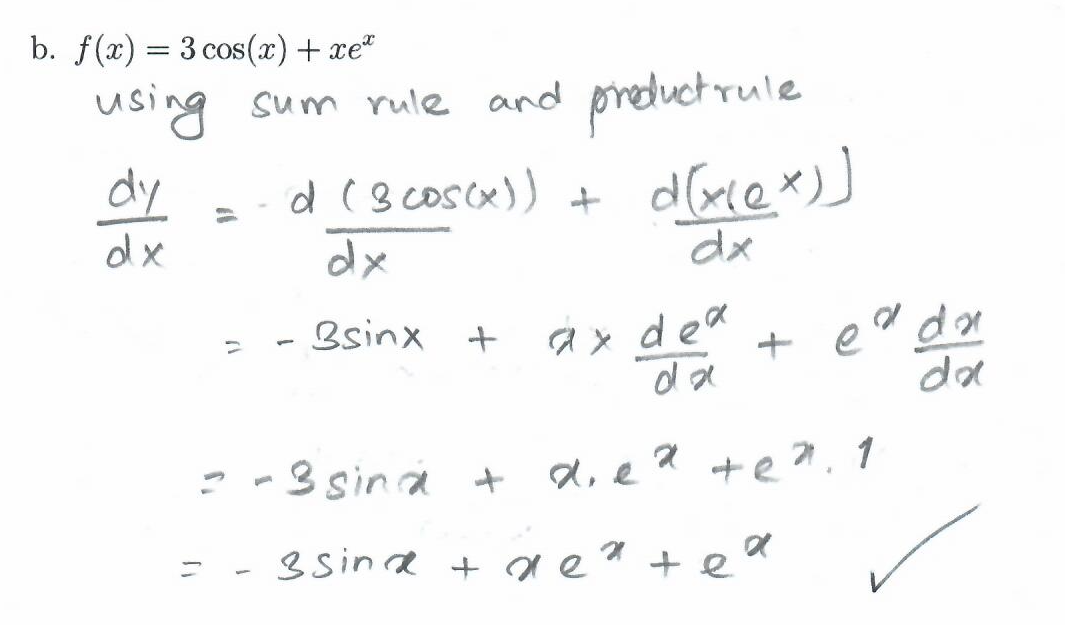 b. f(x) = 3 cos(x) + xe^x
using sum rule and product rule
dy/dx = d(3cos(x))/dx + d[x(e^x)]/dx
= -3sinx + x × de^x/dx + e^x dx/dx
= -3sinx + x.e^x + e^x.1
= -3sinx + xe^x + e^x ✓